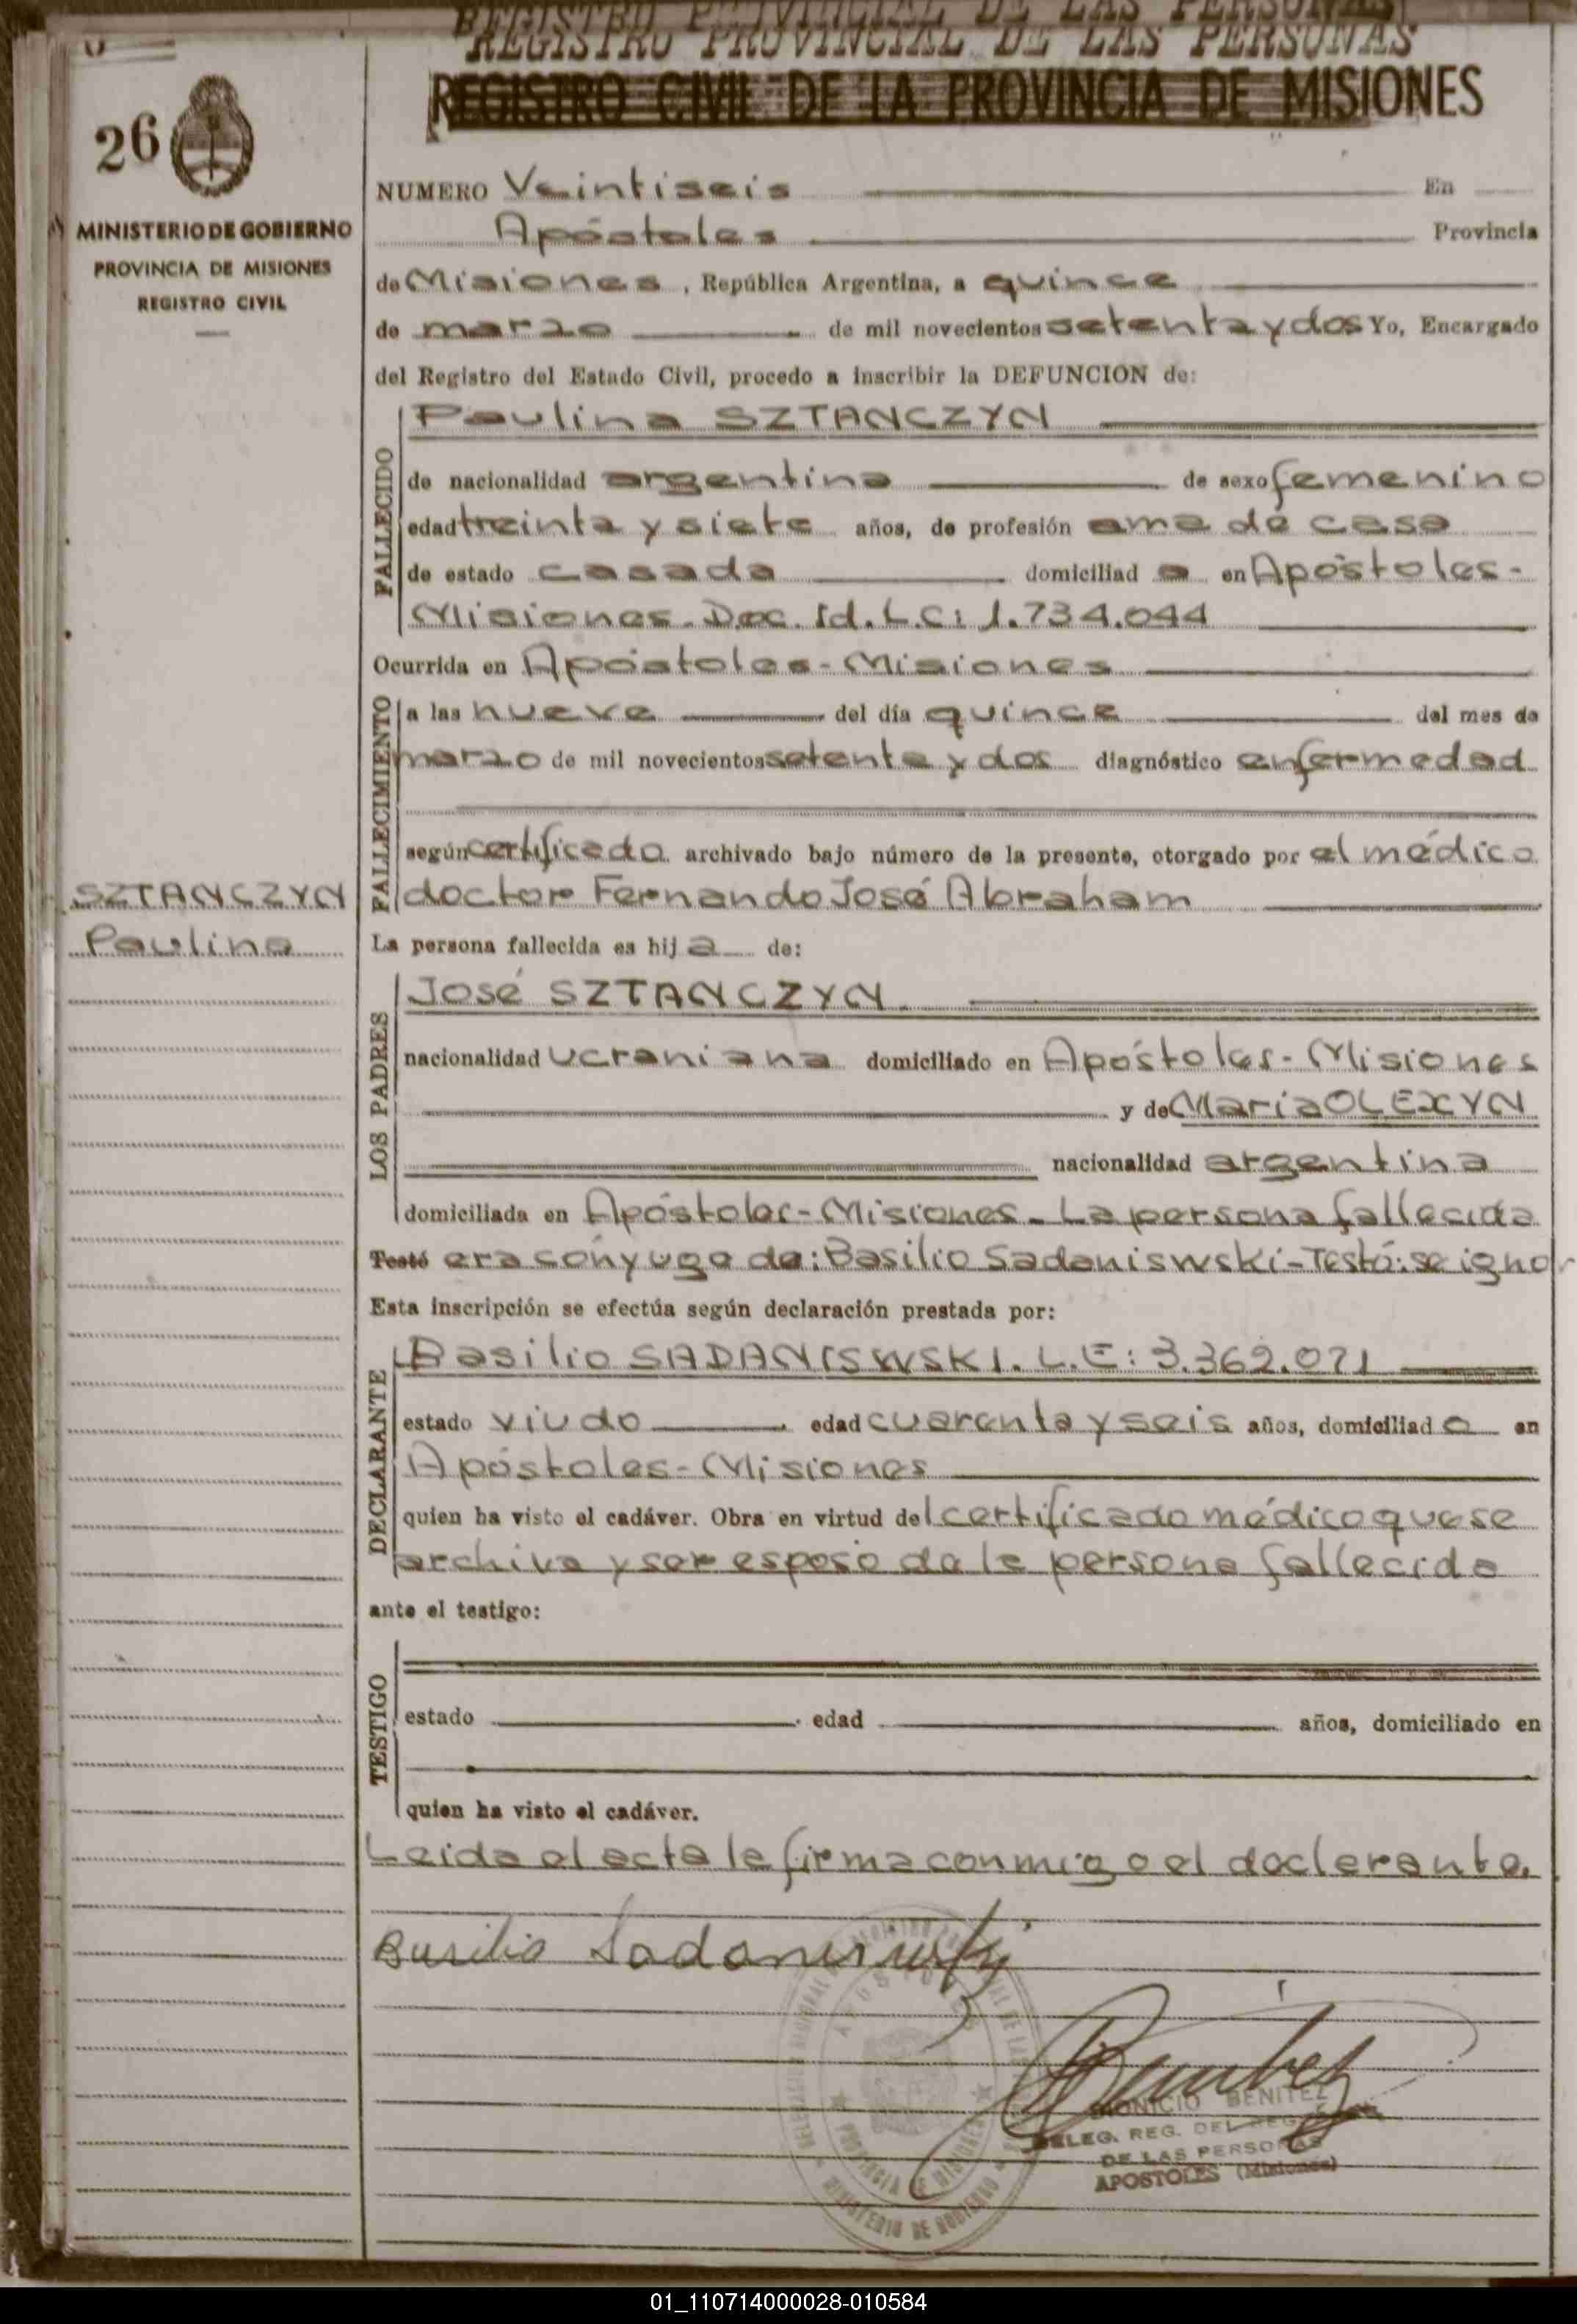 REGISTRO PROVINCIAL DE LAS PERSONAS
REGISTRO PROVINCIAL DE LAS PERSONAS
REGISTRO CIVIL DE LA PROVINCIA DE MISIONES
26
MINISTERIO DE GOBIERNO
PROVINCIA DE MISIONES
REGISTRO CIVIL
NUMERO Veintiseis En
Apóstoles Provincia
de Misiones, República Argentina, a quince
de marzo de mil novecientos setenta y dos Yo, Encargado
del Registro del Estado Civil, procedo a inscribir la DEFUNCION de:
FALLECIDO
Paulina SZTANCZYN
de nacionalidad argentina de sexo femenino
edad treinta y siete años, de profesión ama de casa
de estado casada domiciliad a en Apóstoles-
Misiones. Doc. Id. L.C: 1.734.044
Ocurrida en Apóstoles-Misiones
FALLECIMIENTO
a las nueve del día quince del mes de
marzo de mil novecientos setenta y dos diagnóstico enfermedad
según certificado archivado bajo número de la presente, otorgado por el médico
doctor Fernando José Abraham
SZTANCZYN
Paulina
La persona fallecida es hij a de:
LOS PADRES
José SZTANCZYN
nacionalidad ucraniana domiciliado en Apóstoles-Misiones
y de María OLEXYN
nacionalidad argentina
domiciliada en Apóstoles-Misiones. La persona fallecida
Testó era cónyuge de: Basilio Sadaniswski-Testó: se ignor
Esta inscripción se efectúa según declaración prestada por:
DECLARANTE
Basilio SADANISWSKI. L.E: 3.362.071
estado viudo edad cuarenta y seis años, domiciliad o en
Apóstoles-Misiones
quien ha visto el cadáver. Obra en virtud del certificado médico que se
archiva y ser esposo de la persona fallecida
ante el testigo:
TESTIGO
estado edad años, domiciliado en
quien ha visto el cadáver.
Leida el acta la firma conmigo el declarante.
Basilio Sadaniswski
Benitez
DIONICIO BENITEZ
DELEG. REG. DEL REG.
DE LAS PERSONAS
APOSTOLES (Misiones)
PROVINCIA DE MISIONES
MINISTERIO DE GOBIERNO
01_110714000028-010584